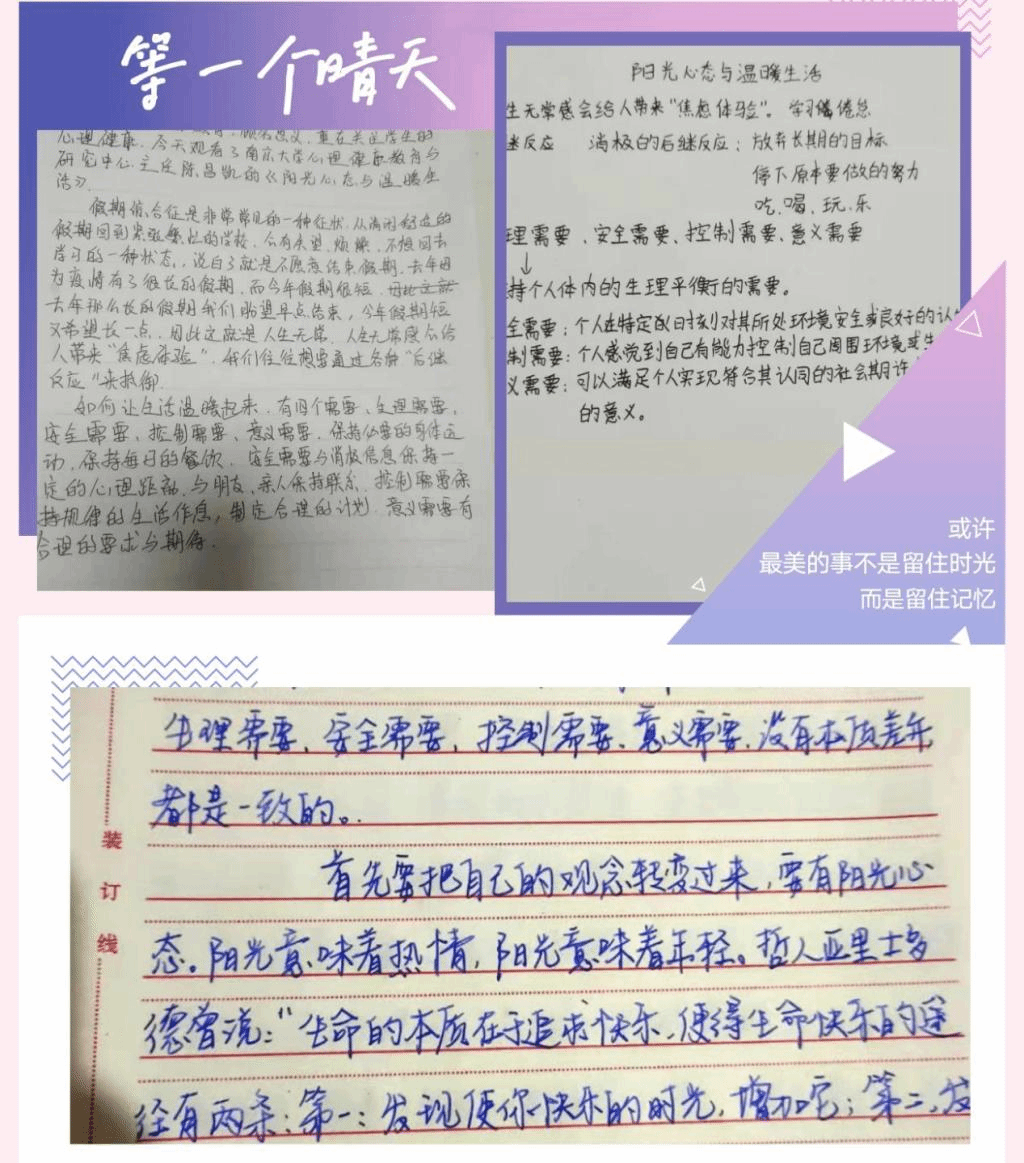 等一个晴天
心理健康.今天观看了南京大学心理健康教育与
研究中心主任陈昌凯的《阳光心态与温暖生
活》.
假期综合征是非常常见的一种症状.从清闲舒适的
假期回到紧张繁忙的学校,会有失望、烦躁、不想回去
学习的一种状态,说白了就是不愿意结束假期.去年因
为疫情有了很长的假期,而今年假期很短,
去年那么长的假期我们盼望早点结束,今年假期短
又希望长一点,因此这就是人生无常.人生无常感会给
人带来“焦虑体验”.我们往往想要通过各种“后继
反应”来抵御.
如何让生活温暖起来.有四个需要、生理需要、
安全需要、控制需要、意义需要.保持必要的身体运
动,保持每日的餐饮.安全需要与消极信息保持一
定的心理距离,与朋友、亲人保持联系.控制需要保
持规律的生活作息,制定合理的计划.意义需要有
合理的要求与期待.
阳光心态与温暖生活
生无常感会给人带来“焦虑体验”。学习倦怠
继反应 消极的后继反应:放弃长期的目标
停下原本要做的努力
吃、喝、玩、乐
理需要、安全需要、控制需要、意义需要
↓
持个人体内的生理平衡的需要。
全需要:个人在特定的时刻对其所处环境安全或良好的认
制需要:个人感觉到自己有能力控制自己周围环境或
义需要:可以满足个人实现符合其认同的社会期许
的意义。
或许
最美的事不是留住时光
而是留住记忆
生理需要、安全需要、控制需要、意义需要.没有本质差异,
都是一致的。
首先要把自己的观念转变过来,要有阳光心
态。阳光意味着热情,阳光意味着年轻。哲人亚里士多
德曾说:“生命的本质在于追求快乐,使得生命快乐的途
径有两条:第一:发现使你快乐的时光,增加它;第二,发
装
订
线